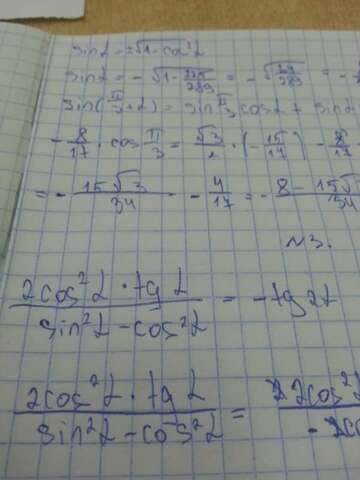 sinα = ±√1-cos²α
sinα = -√1-225/289 = -√64/289 = -
sin(π/3+α) = sin π/3 cosα + sinα
-8/17 · cos π/3 = √3/2 · (-15/17) - 8/17
= -15√3/34 - 4/17 = -8-15√3/34
N3.
2cos²α · tgα / sin²α - cos²α = -tg2α
2cos²α · tgα / sin²α - cos²α = 2cos²α / -2co